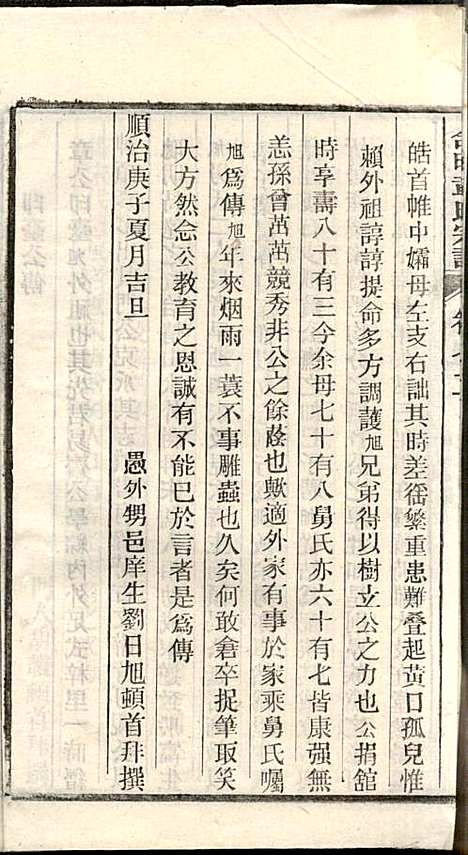 皓首帷中孀母左支右詘其時差徭繁重患難叠起黃口孤兒惟
賴外祖諄諄提命多方調護旭兄弟得以樹立公之力也公捐舘
時享壽八十有三今余母七十有八舅氏亦六十有七皆康强無
恙孫曾茁茁競秀非公之餘蔭也歟適外家有事於家乘舅氏囑
旭爲傳旭年來烟雨一蓑不事雕蟲也久矣何敢倉卒捉筆取笑
大方然念公教育之恩誠有不能已於言者是爲傳
順治庚子夏月吉旦　愚外甥邑庠生劉日旭頓首拜撰